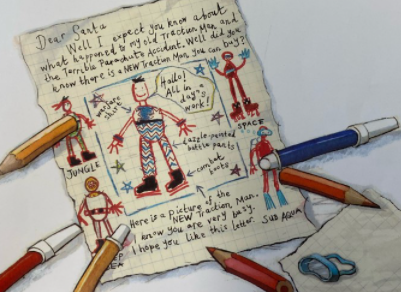 Dear Santa
Well I expect you know about
what happened to my old Traction Man and
the Terrible Parachute Accident. Well did you
know there is a NEW Traction Man you can buy?
Hallo!
All in a
day's
work!
warfare
shirt
SPACE
dazzle-painted
battle pants
combat
boots
JUNGLE
Here is a picture of the
NEW Traction Man.
I know you are very busy.
I hope you like this letter.
SUB AQUA